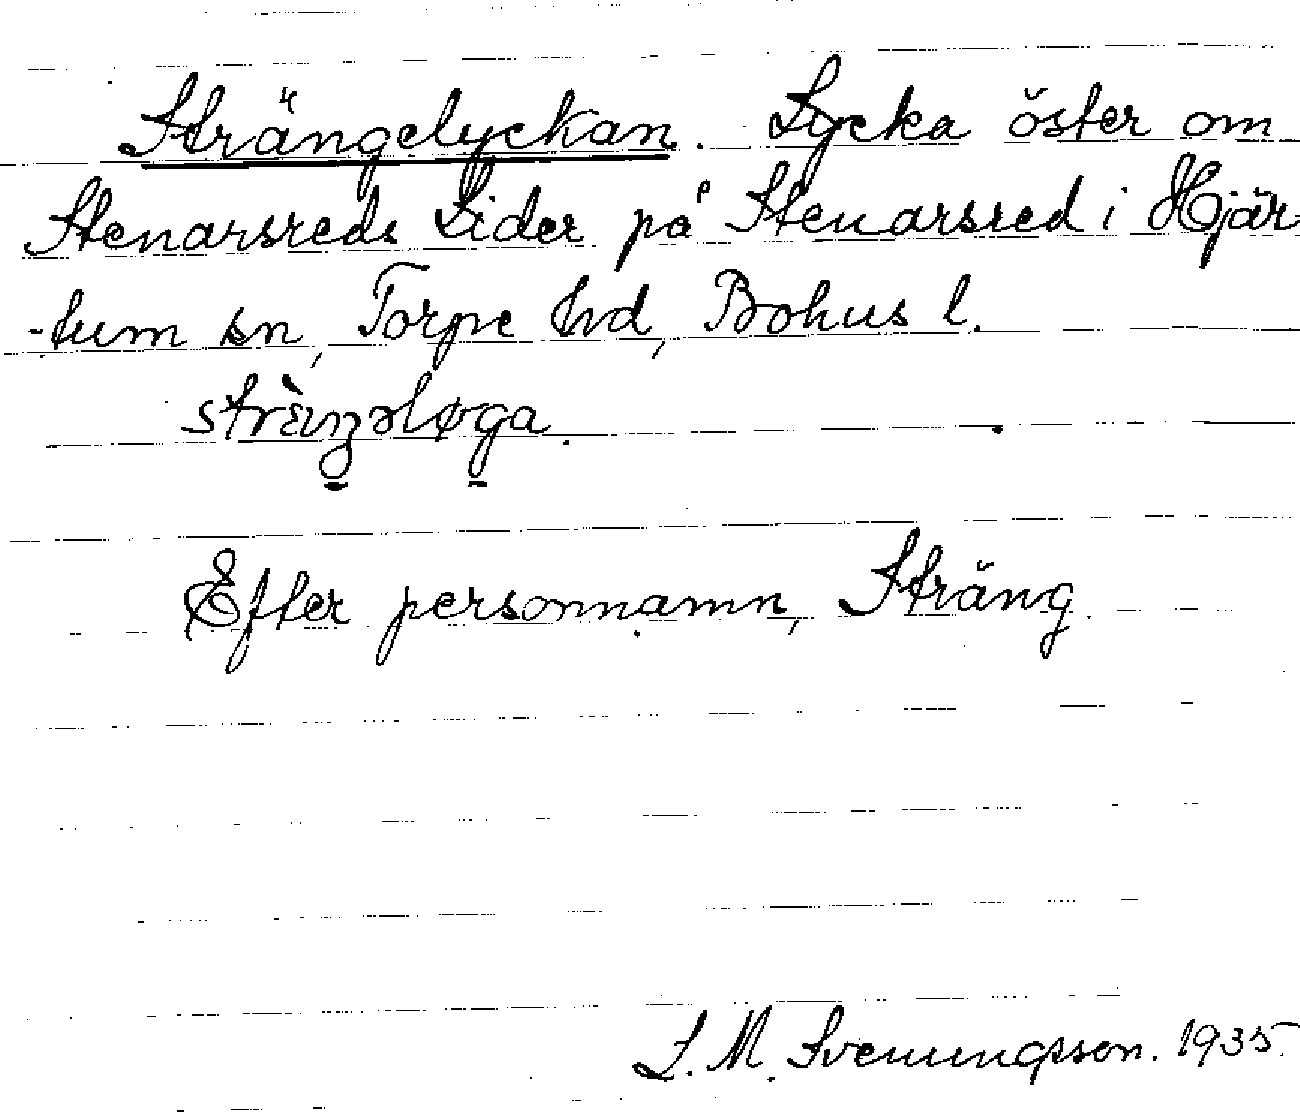 Strängelyckan. Lycka öster om
Stenarsreds Lider på Stenarsred i Hjär
-tum sn, Torpe hd, Bohus l.
strὲŋəløga.
Efter personnamn, Sträng.
L. M. Svenungsson. 1935.